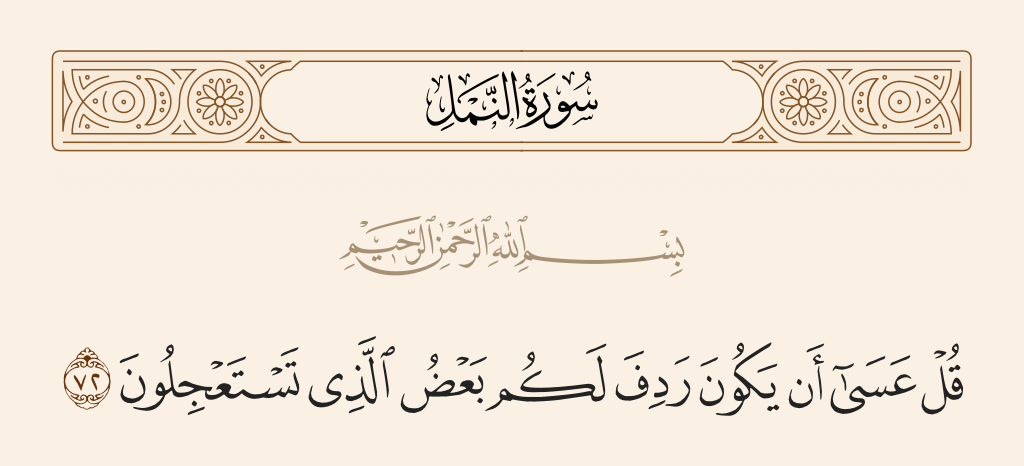 سُورَةُ النَّمۡلِ
بِسۡمِ ٱللَّهِ ٱلرَّحۡمَٰنِ ٱلرَّحِيمِ
قُلۡ عَسَىٰٓ أَن يَكُونَ رَدِفَ لَكُم بَعۡضُ ٱلَّذِى تَسۡتَعۡجِلُونَ ٧٢